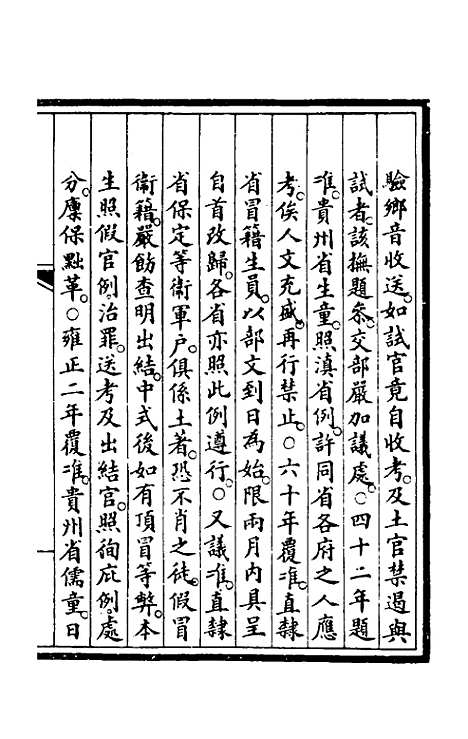 驗鄉音收送。如試官竟自收考。及土官禁遏與
試者。該撫題參。交部嚴加議處。○四十二年題
准。貴州省生童。照滇省例。許同省各府之人應
考。俟人文充盛。再行禁止。○六十年覆准。直隸
省冒籍生員。以部文到日為始。限兩月內具呈
自首改歸。各省亦照此例遵行。○又議准。直隸
省保定等衞軍戶。俱係土著。恐不肖之徒。假冒
衞籍。嚴飭查明出結。中式後如有頂冒等弊。本
生照假官例治罪。送考及出結官。照徇庇例。處
分。廩保黜革。○雍正二年覆准。貴州省儒童。日